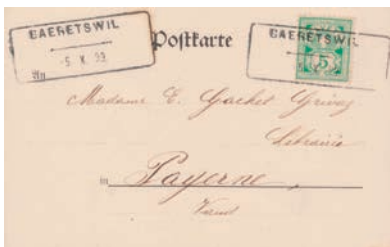 BAERETSWIL
-5 X 99
Postkarte
BAERETSWIL
5
An
Madame E. Gachet Grivaz
Librairie
in Payerne,
Vaud